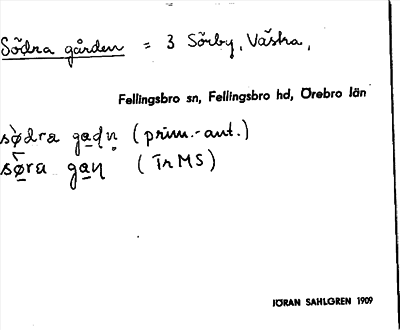 Södra gården = 3 Sörby, Västra,
Fellingsbro sn, Fellingsbro hd, Örebro län
sø̀dra ga̲dṇ (prim.-ant.)
sø̲̀ra ga̲ṇ (Tr MS)
JÖRAN SAHLGREN 1909